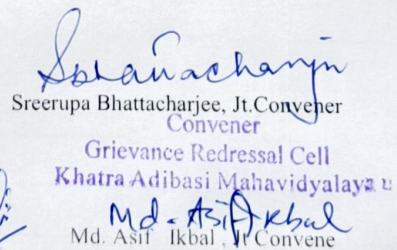 Sreerupa Bhattacharjee, Jt.Convener
Convener
Grievance Redressal Cell
Khatra Adibasi Mahavidyalaya
Md. Asif Ikbal
Md. Asif Ikbal, Jt Convene